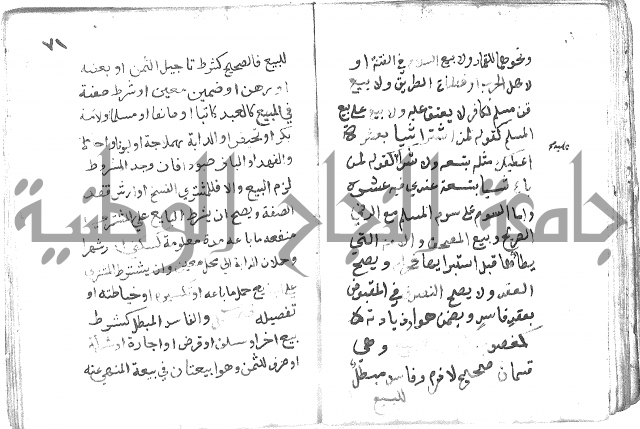 ونحوها للقمار ولا بيع السلاح في الفتنة او
لاهل الحرب او قطاع الطريق ولا بيع
قن مسلم لكافر لا يعتق عليه ولا بيع على بيع
المسلم كقوله لمن اشترى شيا بعشرة
اعطيك مثله بتسعة ولا شراء كقوله لمن
باع شيا بتسعة عندي فيه عشرة
واما السوم على سوم المسلم مع الرضى
الصريح وبيع المصحف والامة التي
يطاها قبل استبرايها فحرام ويصح
العقد ولا يصح التصرف في المقبوض
بعقد فاسد ويضمن هو وزيادته
كمغصوب وهي
قسمان صحيح لازم وفاسد مبطل
للبيع
٧١
للبيع فالصحيح كشرط تاجيل الثمن او بعضه
او رهن او ضمين معين او شرط صفة
في المبيع كالعبد كاتبا او صانعا او مسلما والامة
بكرا او تحيض والدابة هملاجة او لبونا
والفهد او الباز صيودا فان وجد المشروط
لزم البيع والا فللمشتري الفسخ او ارش فقد
الصفة ويصح ان يشرط البايع على المشتري
منفعة ما باعه مدة معلومة كسكنى الدار شهرا
وحملان الدابة الى محل معين وان يشترط المشتري
على البايع حمل ما باعه او تكسيره او خياطته او
تفصيله والفاسد المبطل كشرط
بيع اخر او سلف او قرض او اجارة او شركة
او صرف للثمن وهو بيعتان في بيعة المنهي عنه
جامعة النجاح الوطنية